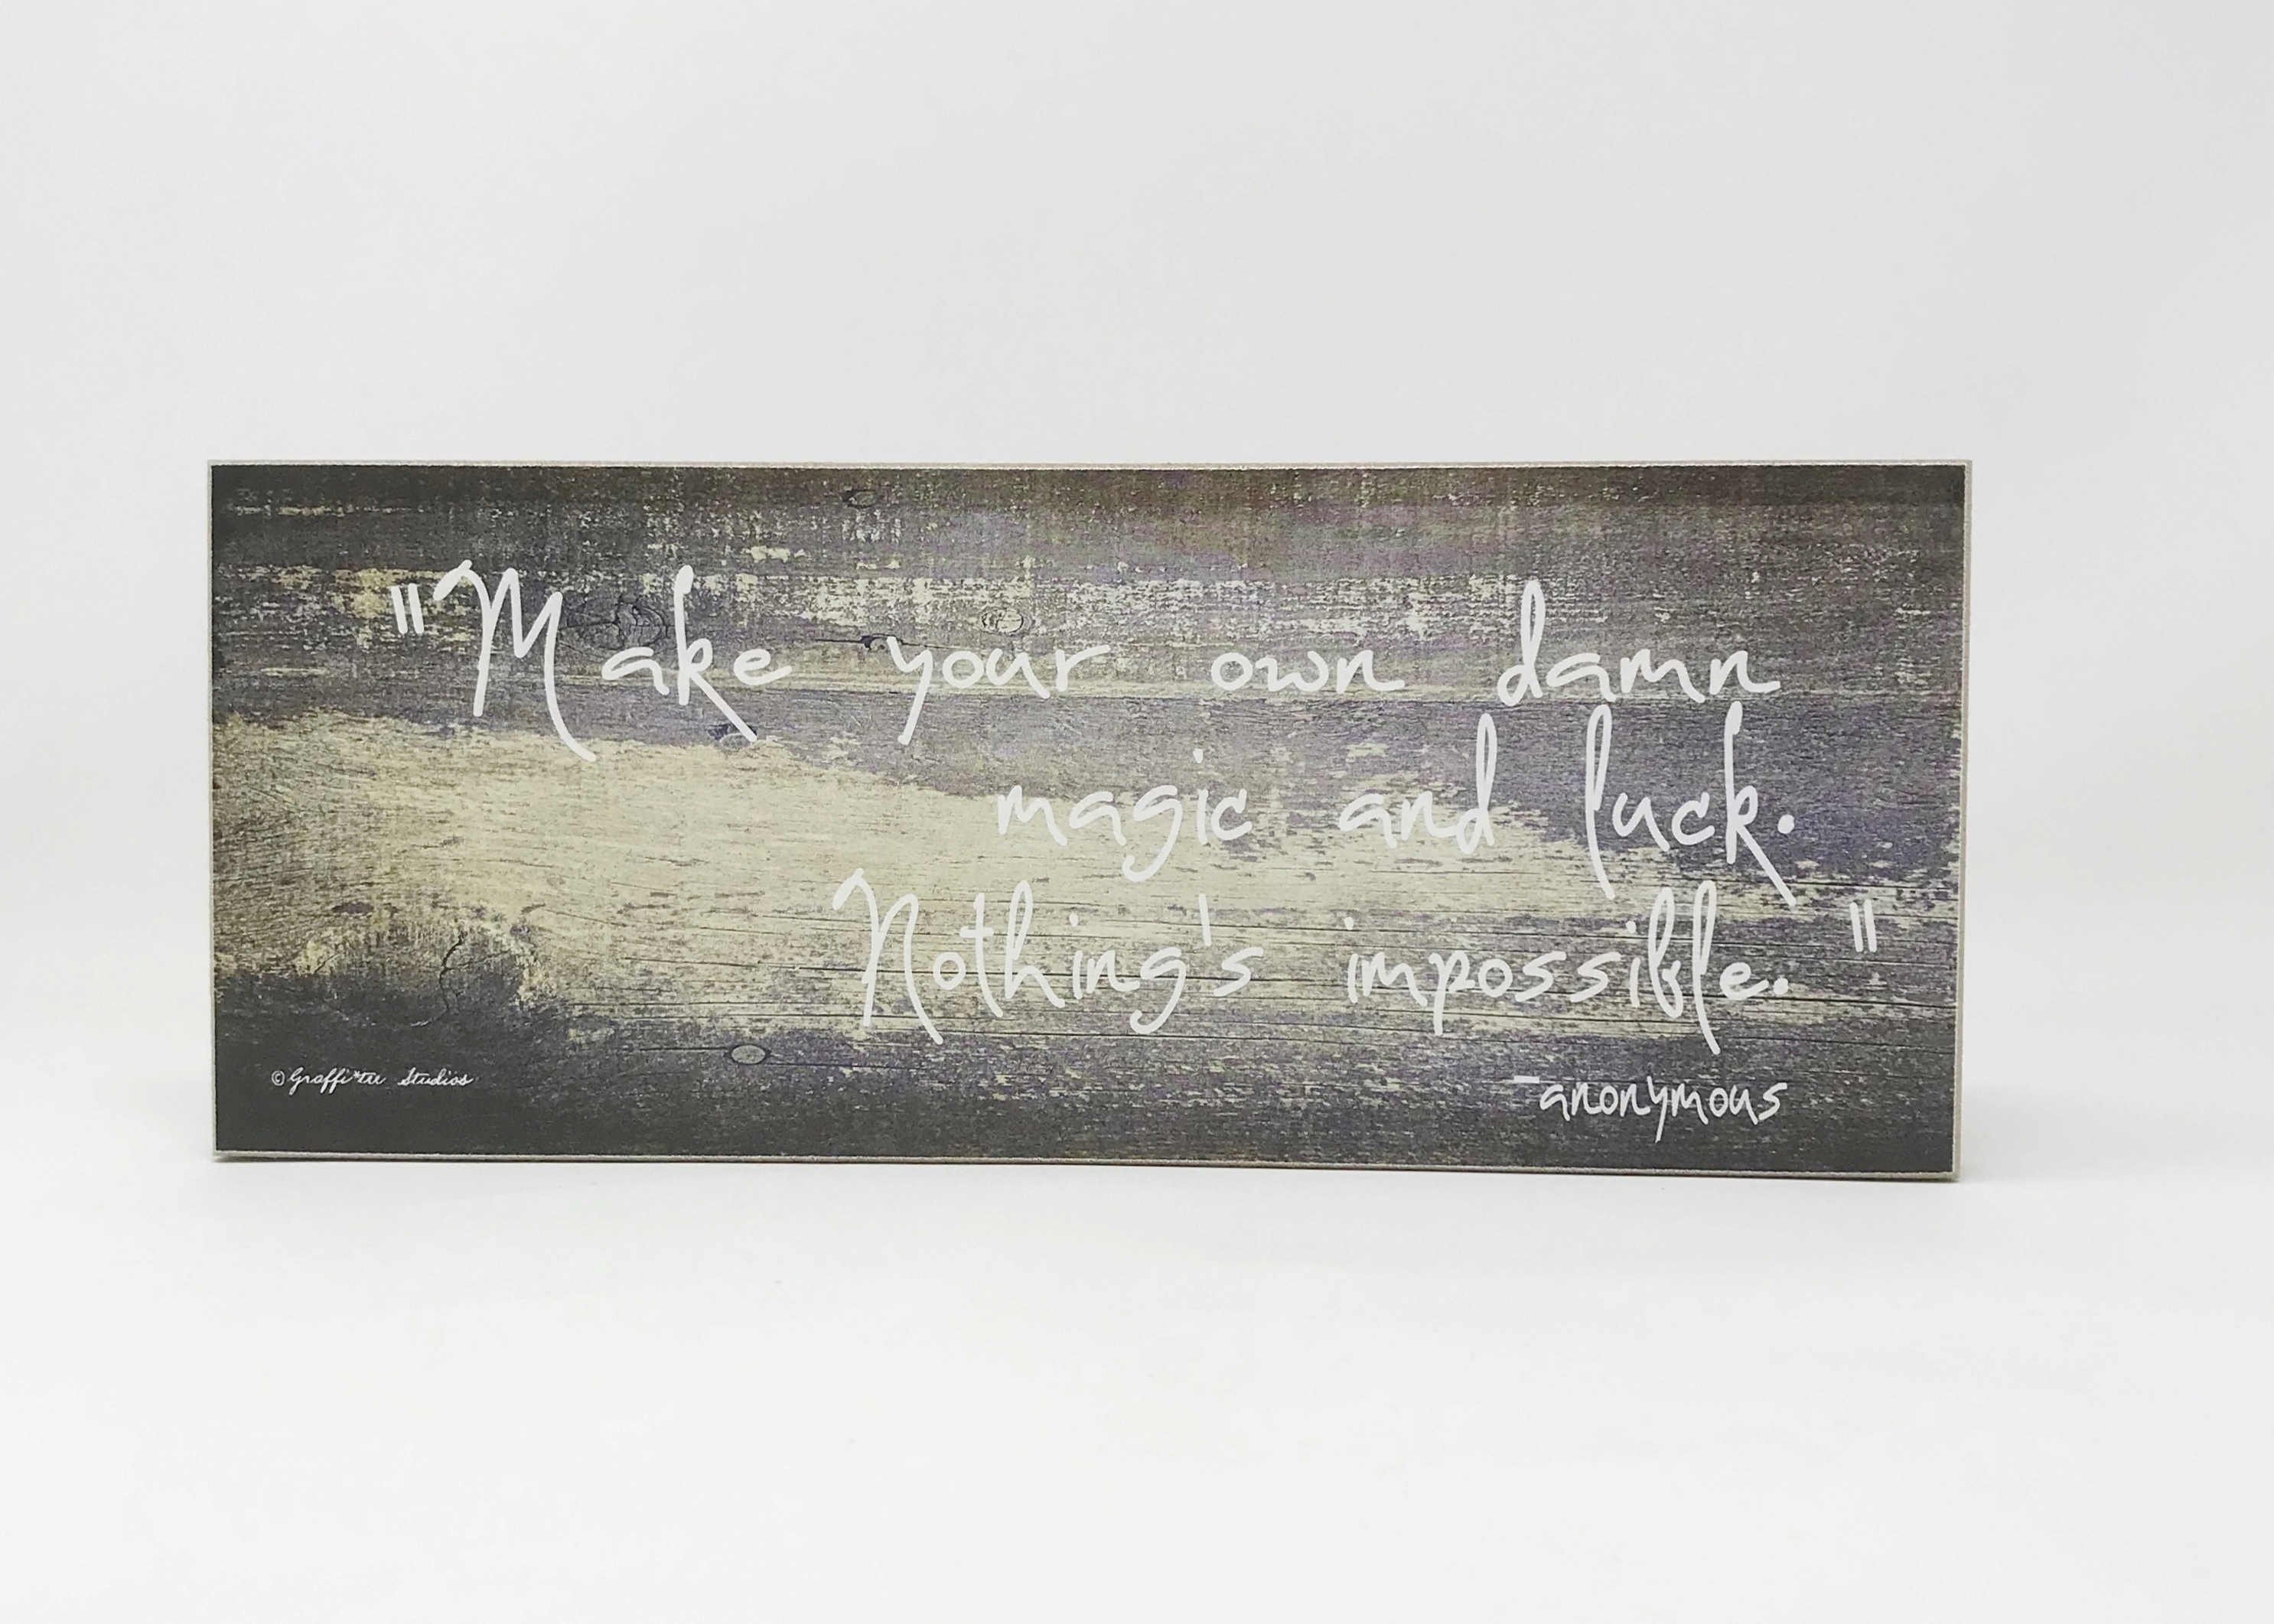 "Make your own damn
magic and luck.
Nothing's impossible."
-anonymous
©Graffi*tee Studios